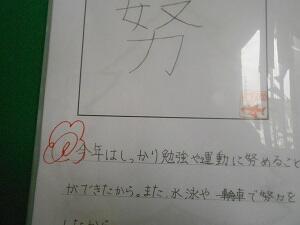 努
今年はしっかり勉強や運動に努めること
ができたから。また、水泳や一輪車で努力を